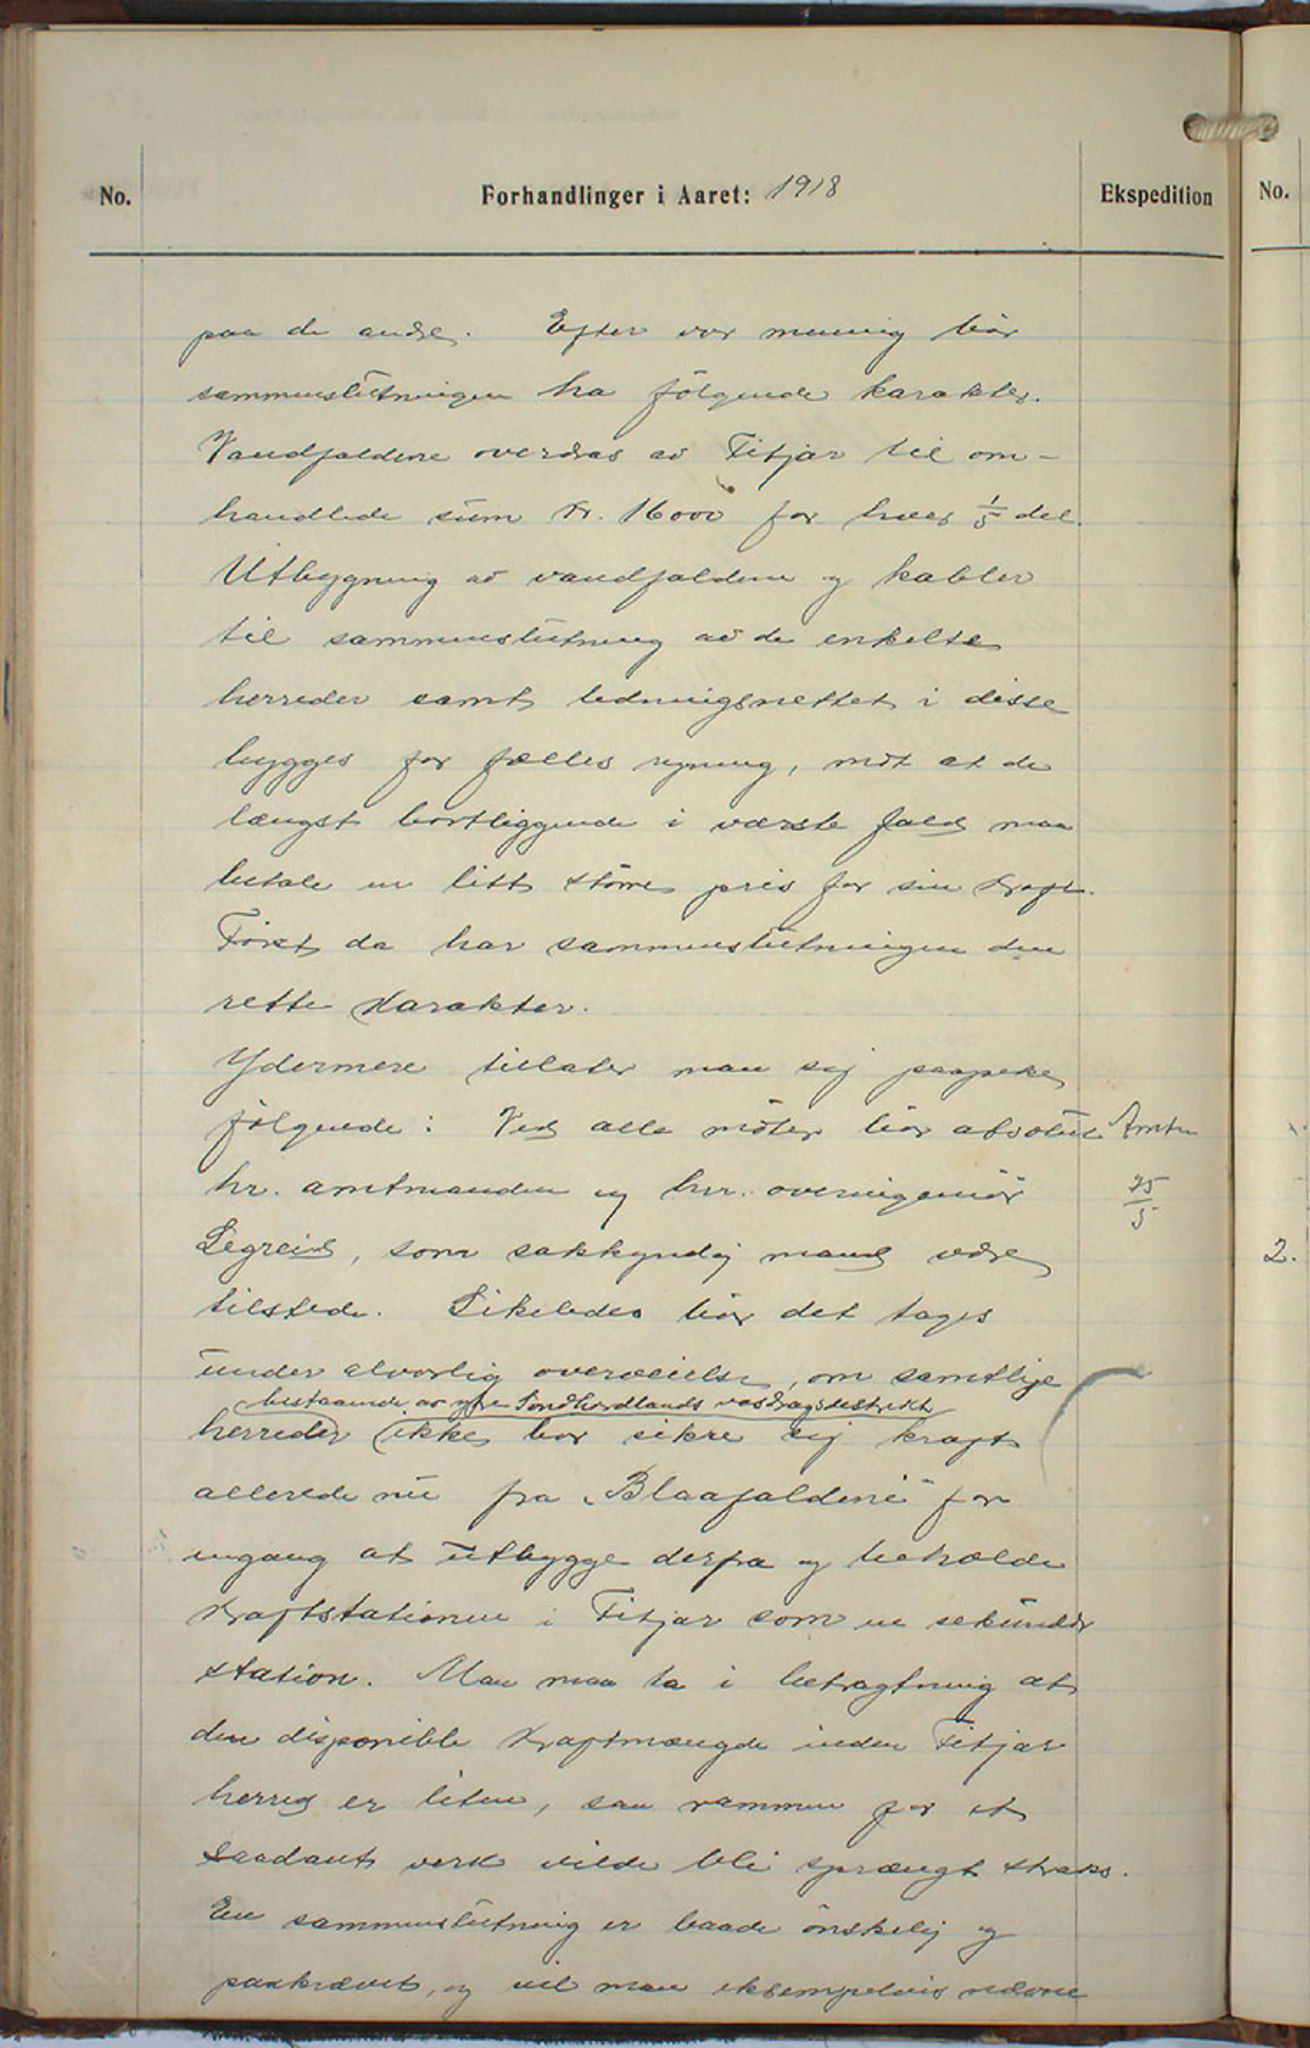 No.
Forhandlinger i Aaret: 1918
Ekspedition
No.
paa de andre. Efter vor mening bör
sammenslutningen ha følgende karakter.
Vandfaldene overdras av Fitjar til om-
handlede sum kr. 16000 for hver 1/5 del.
Utbygning av vandfaldene og kabler
til sammenslutning av de enkelte
herreder samt ledningsnettet i disse
bygges for fælles regning, mot at de
længst bortliggende i værste fald maa
betale en litt större pris for sin kraft.
Först da har sammenslutningen den
rette karakter.
Ydermere tillater man sig paapeke
følgende: Ved alle möter bör absolut
hr. amtmanden og hrr. overingeniör
Legreid, som sakkyndig mand være
tilstede. Likeledes bör det tages
under alvorlig overveielse, om samtlige
bestaaende av ytre Söndhordlands vasdragsdestrikt
herreder ikke bor sikre sig kraft
allerede nu fra "Blaafaldene" for
engang at utbygge derfra og beholde
kraftstationen i Fitjar som en sekundær
station. Man maa ta i betragtning at
den disponible kraftmængde inden Fitjar
herred er liten, saa rammen for et
saadant verk vilde bli sprængt straks.
En sammenslutning er baade önskelig og
paakrævet, og vil man eksempelvis nævne
Amtm
25/5
2.